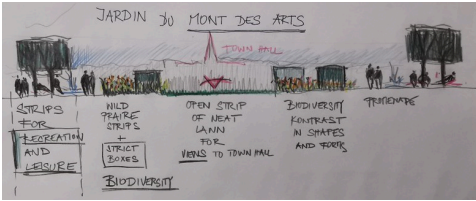 JARDIN DU MONT DES ARTS
TOWN HALL
STRIPS
FOR
RECREATION
AND
LEISURE
WILD
PRAIRE
STRIPS
+
STRICT
BOXES
BIODIVERSITY
OPEN STRIP
OF NEAT
LAWN
FOR
VIEWS TO TOWN HALL
BIODIVERSITY
KONTRAST
IN SHAPES
AND FORMS
PROMENADE